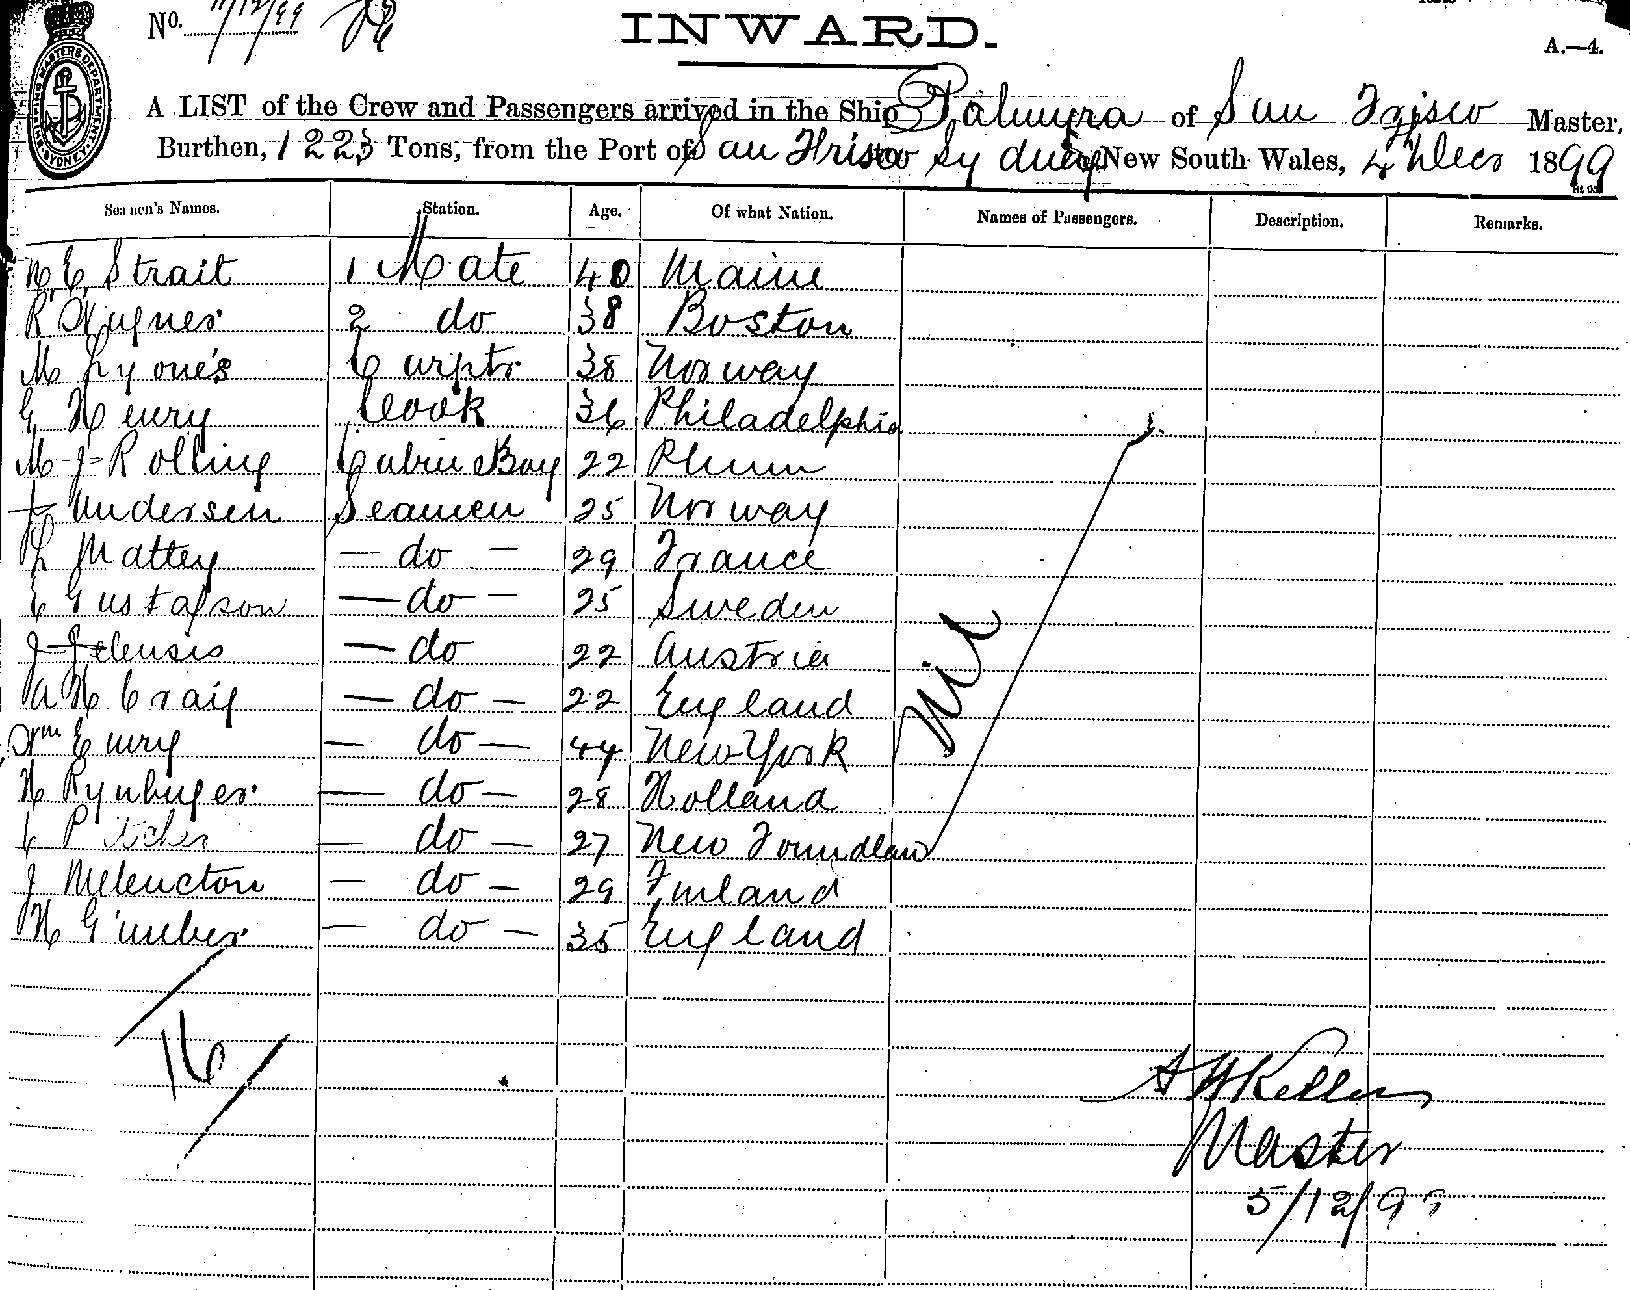 No. 11/12/99
INWARD.
A.—4.
A LIST of the Crew and Passengers arrived in the Ship Palmyra of San Fzisco Master,
Burthen, 1223 Tons, from the Port of San Frisco Sydney New South Wales, 4 Decr 1899
Seamen's Names. Station. Age. Of what Nation. Names of Passengers. Description. Remarks.
Strait 1 Mate 40 Maine
R Hugnes 2 do 38 Boston
M Lyone's Carptr 38 Norway
G Henry Cook 36 Philadelphia
M J Rolling Cabin Boy 22 
Andersen Seamen 25 Norway
L Mattey — do — 29 France
C Gustafson — do — 25 Sweden
J — do 22 Austria
A H Craig — do — 22 England
Wm Emry — do — 44 New York
H — do — 28 Holland
C Pitcher — do — 27 New Foundlan
J — do — 29 Finland
H — do — 35 England
Nil
16
Master
5/12/99